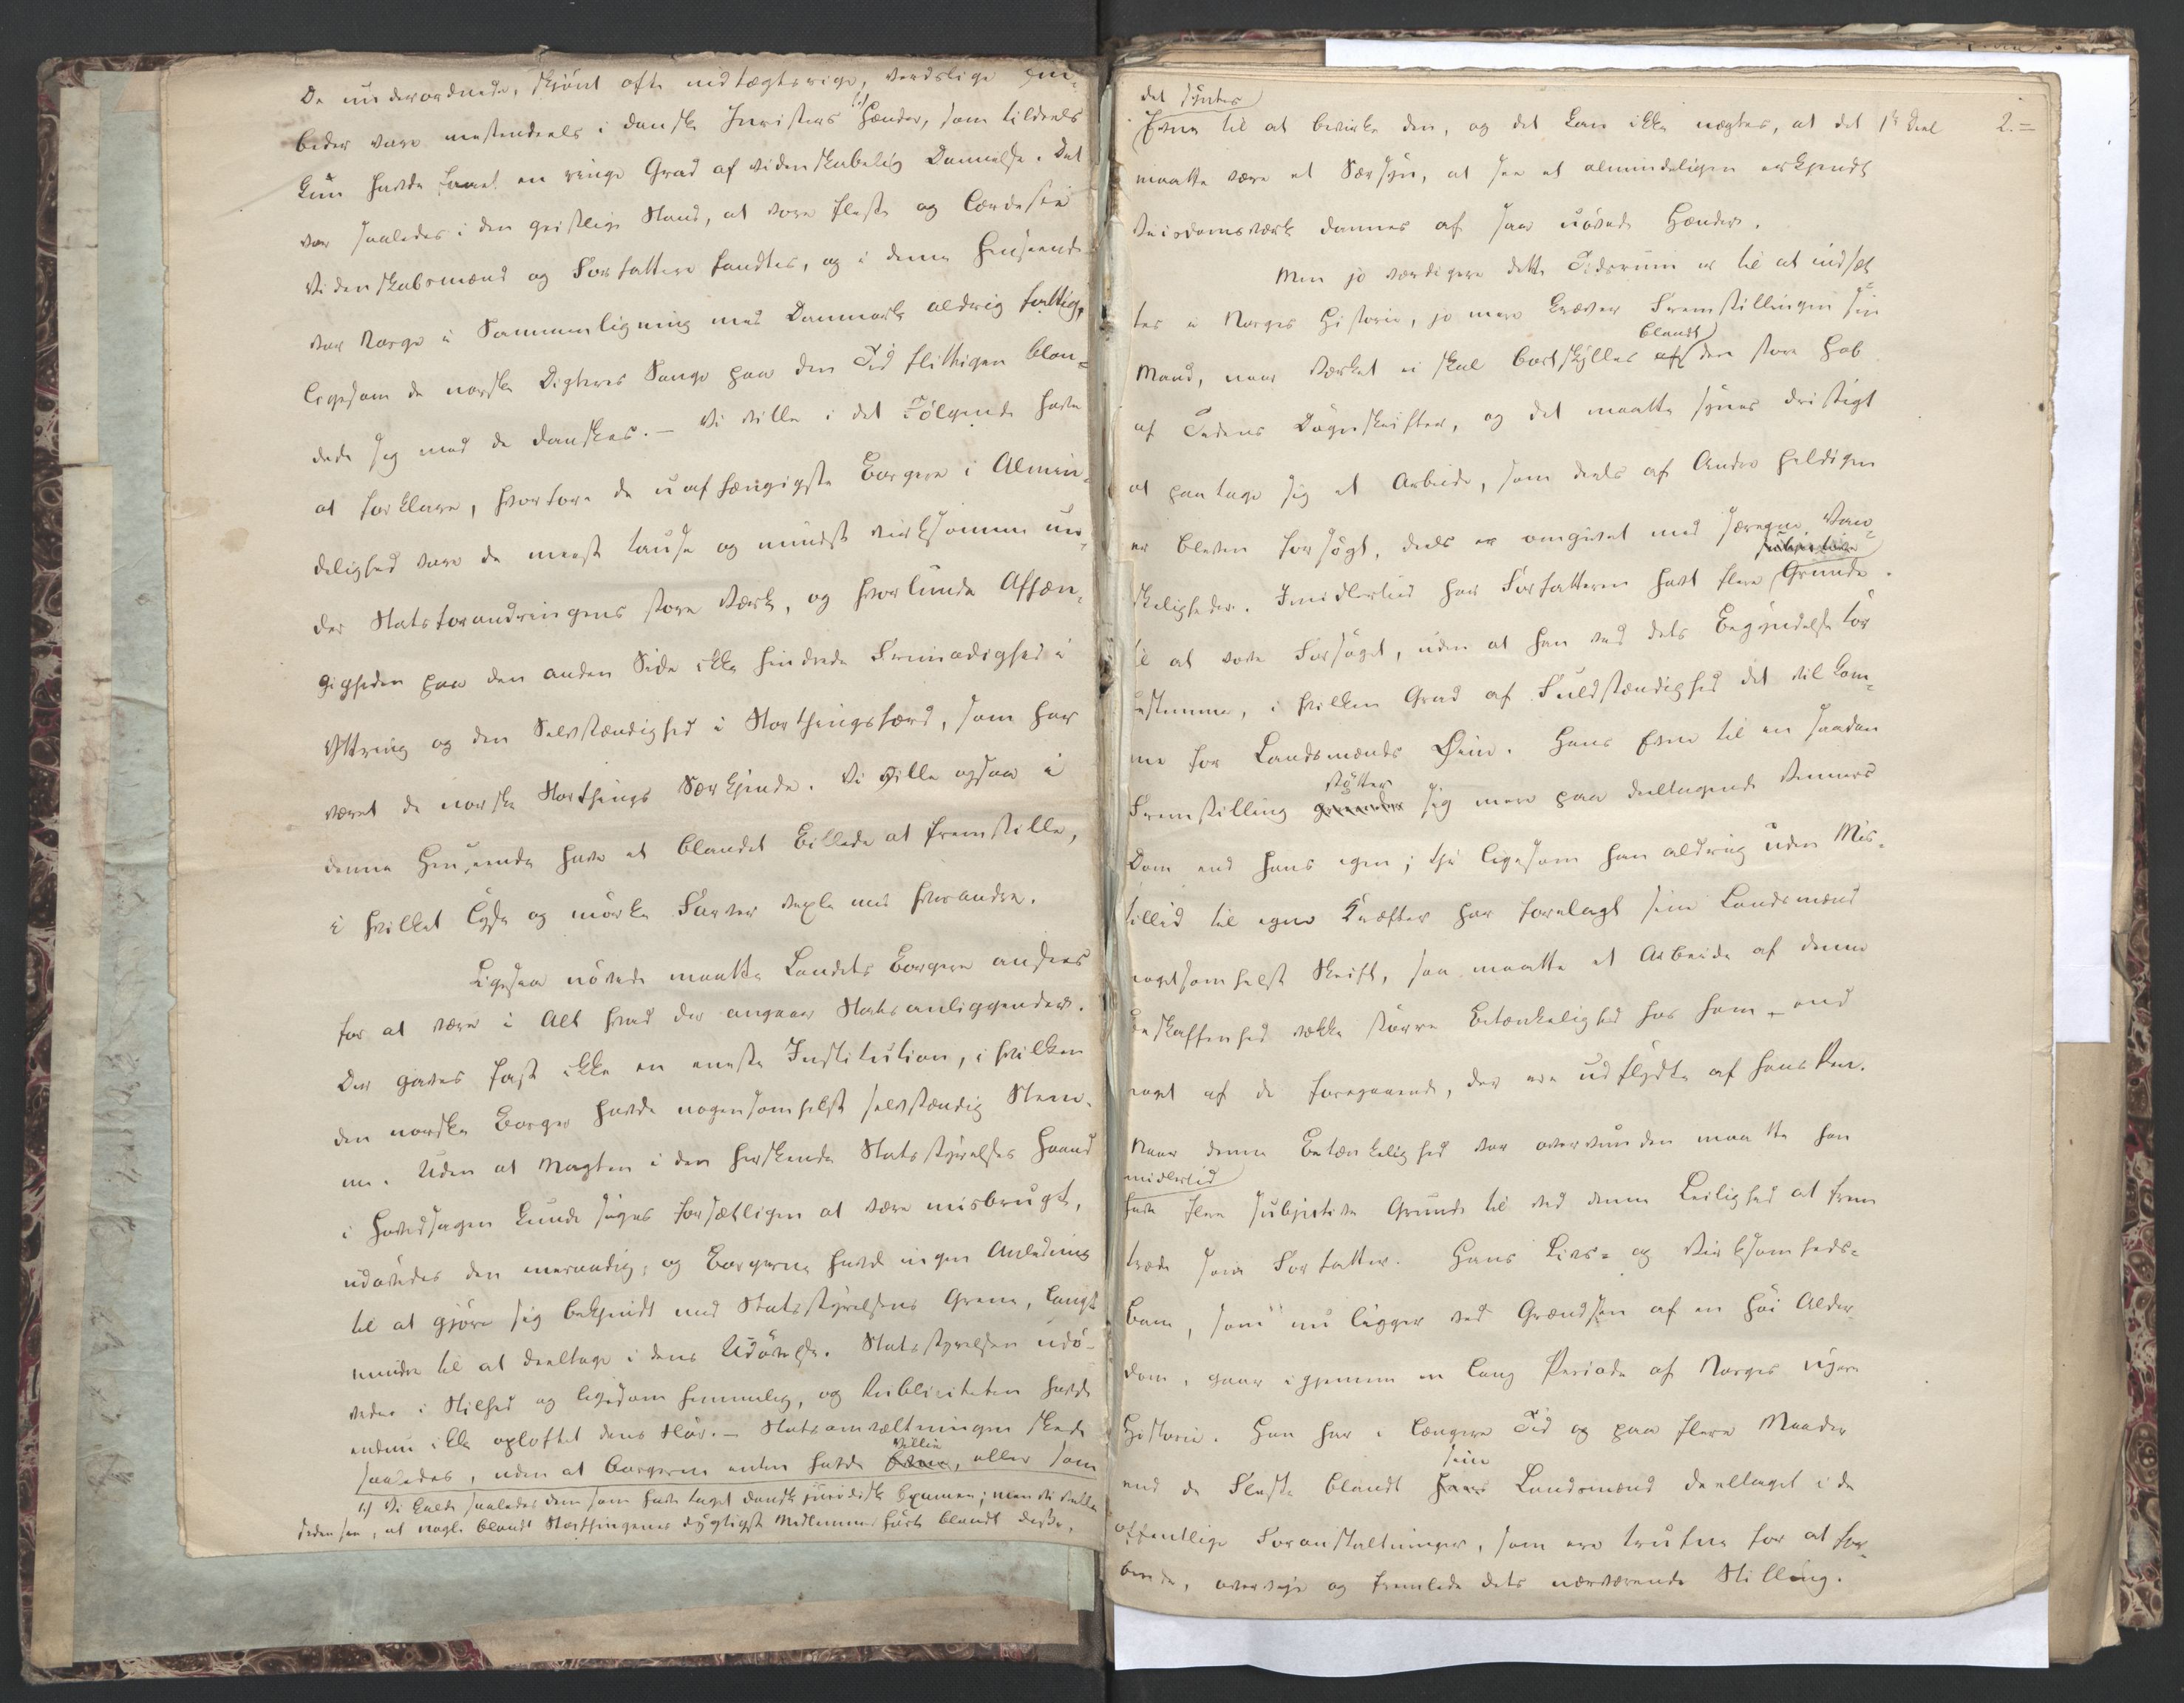 De underordnede, skjönt ofte indtægtsrige, verdslige Em-
beder vare mestendeels i danske Juristers 1) Hænder, som tildeels
kun havde faaet en ringe Grad af videnskabelig Dannelse. Det
var saaledes i den geistlige Stand, at vore fleste og lærdeste
Videnskabsmænd og Forfattere fandtes, og i denne Henseende
var Norge i Sammenligning med Danmark aldrig fattig,
ligesom de norske Digteres Sange paa den Tid flittigen blan-
dede sig med de danskes. — Vi ville i det Fölgende have
at forklare, hvorfore de uafhængigste Borgere i Almin-
delighed vare de meest tause og mindst virksomme un-
der Statsforandringens store Værk, og hvorlunde Afhæn-
gigheden paa den anden Side ikke hindrede Frimodighed i
Yttring og den Selvstændighed i Storthingsfærd, som har
været de norske Storthings Særkjende. Vi ville ogsaa i
denne Henseende have et blandet Billede at fremstille,
i hvilket lyse og mörke Farver vexle med hverandre.
Ligesaa uövede maatte Landets Borgere ansees
for at være i Alt hvad der angaaer Statsanliggender.
Der gaves fast ikke en eneste Institution, i hvilken
den norske Borger havde nogensomhelst selvstændig Stem-
me. Uden at Magten i den herskende Statsstyrelses Haand
i Hovedsagen kunde siges forsætligen at være misbrugt,
udövedes den eneraadig, og Borgerne havde ingen Anledning
til at gjöre sig bekjendt med Statsstyrelsens Grene, langt
mindre til at deeltage i dens Udövelse. Statsstyrelsen udö-
vedes i Stilhed og ligesom hemmelig, og Publiciteten havde
endnu ikke oplöftet dens Slör. — Statsomvæltningen skede
saaledes, uden at Borgeren enten havde Villie, eller som
1) Vi kalde saaledes dem som have taget dansk juridisk Examen; men vi skulle
siden see, at nogle blandt Storthingenes dygtigste Medlemmer hörte blandt disse.
det syntes
Evne til at bevirke den, og det kan ikke nægtes, at det 1ste Deel 2.=
maatte være et Særsyn, at see et almindeligen erkjendt
Viisdomsværk dannes af saa uövede Hænder.
Men jo værdigere dette Tidsrum er til at indsæt-
tes i Norges Historie, jo mere kræver Fremstillingen sin
blandt
Mand, naar Værket ei skal bortskylles af den store Hob
af Tidens Dögnskrifter, og det maatte synes dristigt
at paatage sig et Arbeide, som deels af Andre heldigen
er bleven forsögt, deels er omgivet med særegne Van-
skeligheder. Imidlertid har Forfatteren havt flere Grunde
til at vove Forsöget, uden at han ved dets Begyndelse tör
bestemme, i hvilken Grad af Fuldstændighed det vil kom-
me for Landsmænds Öine. Hans Evne til en saadan
stötter
Fremstilling grunder sig mere paa deeltagende Venners
Dom end hans egen; thi ligesom han aldrig uden Mis-
tillid til egne Kræfter har forelagt sine Landsmænd
nogetsomhelst Skrift, saa maatte et Arbeide af denne
Beskaffenhed vække större Betænkelighed hos ham end
noget af de foregaaende, der ere udflydte af hans Pen.
Naar denne Betænkelighed var overvunden maatte han
midlertid
have flere subjective Grunde til ved denne Leilighed at frem
træde som Forfatter. Hans Livs- og Virksomheds-
bane, som nu ligger ved Grændsen af en höi Alder-
dom, gaaer igjennem en lang Periode af Norges nyere
Historie. Han har i længere Tid og paa flere Maader
sine
end de Fleste blandt hans Landsmænd deeltaget i de
offentlige Foranstaltninger, som ere trufne for at for-
berede, overveie og fremlede dets nærværende Stilling.